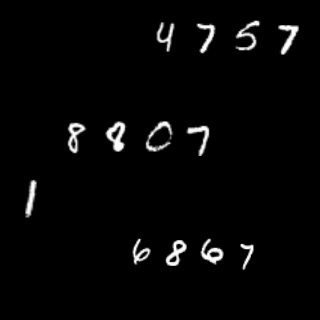 4757
8807
1
6867